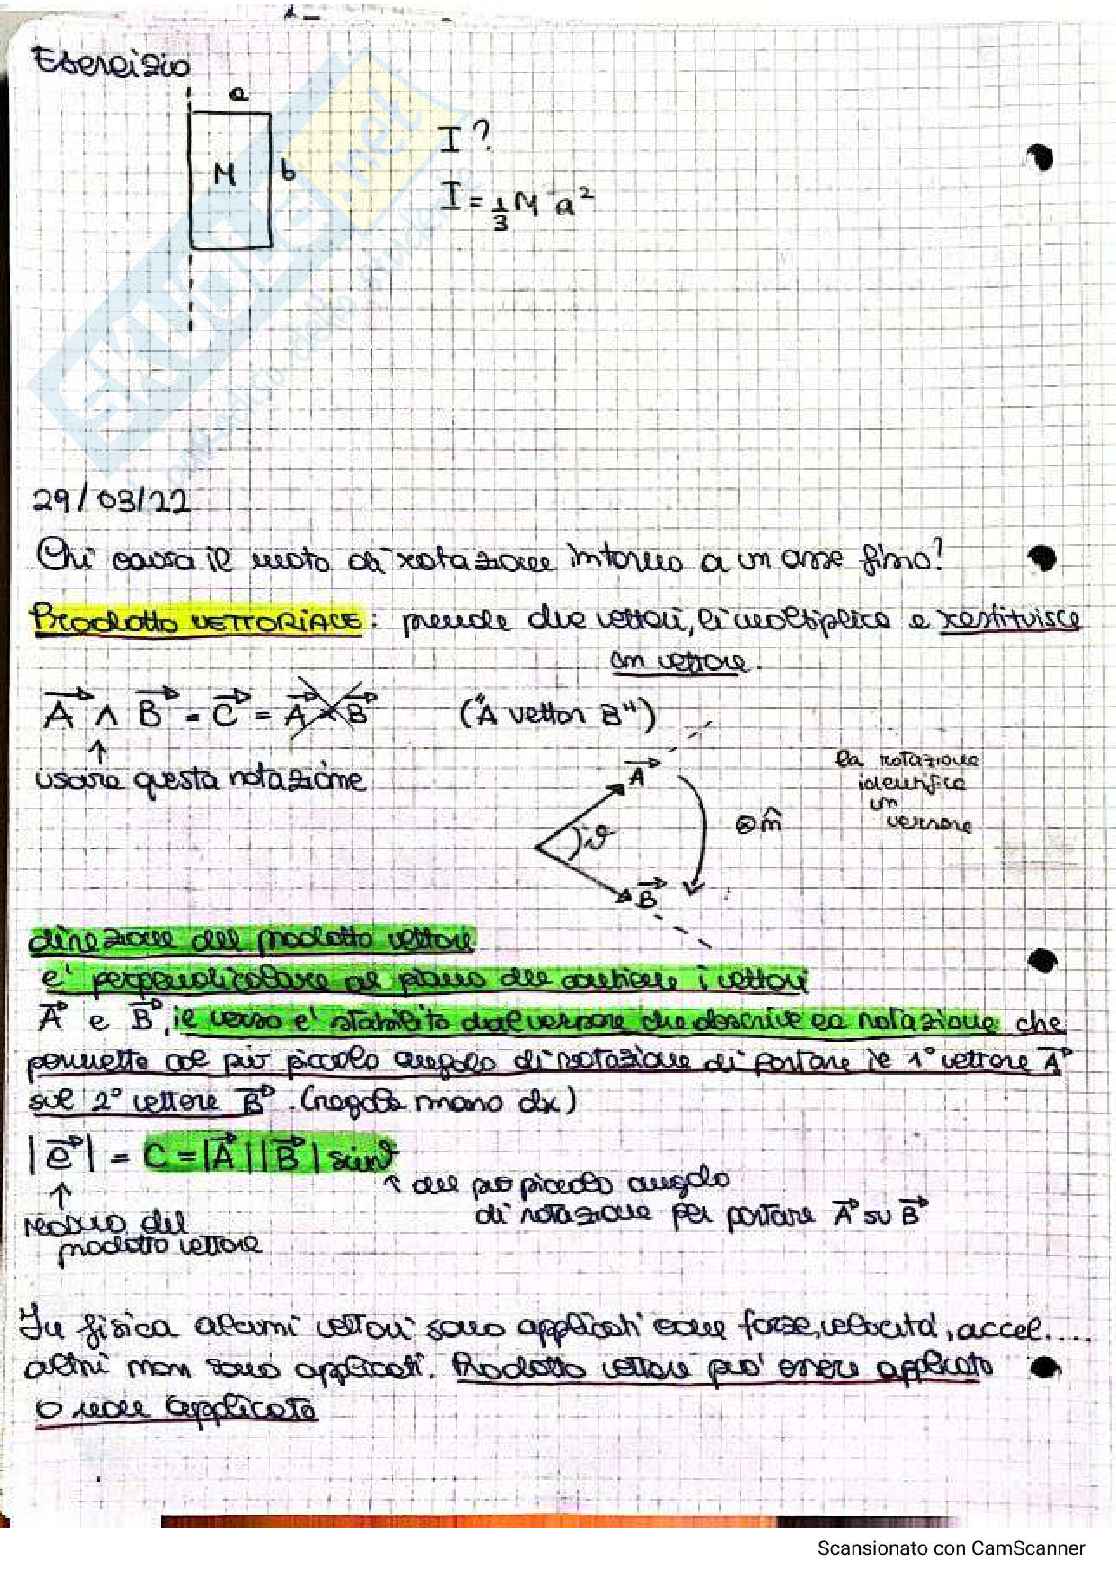 Esercizio
a
M
b
I?
I = 1/3 M a²
29/03/22
Chi causa il moto di rotazione intorno a un asse fisso?
Prodotto VETTORIALE: prende due vettori, li moltiplica e restituisce
un vettore.
A ∧ B = C = A × B ("A vettor B")
↑
usare questa notazione
A
θ
B
⊗ n̂
la rotazione
identifica
un
versore
direzione del prodotto vettore
e' perpendicolare al piano che contiene i vettori
A e B, il verso e' stabilito dal versore che descrive la rotazione che
permette col più piccolo angolo di rotazione di portare il 1° vettore A
sul 2° vettore B. (regola mano dx)
|C| = C = |A| |B| sinθ
↑ del più piccolo angolo
di rotazione per portare A su B
↑
modulo del
prodotto vettore
In fisica alcuni vettori sono applicati come forze, velocità, accel....
altri non sono applicati. Prodotto vettore può essere applicato
o non applicato
SKUOLA.net
Scansionato con CamScanner